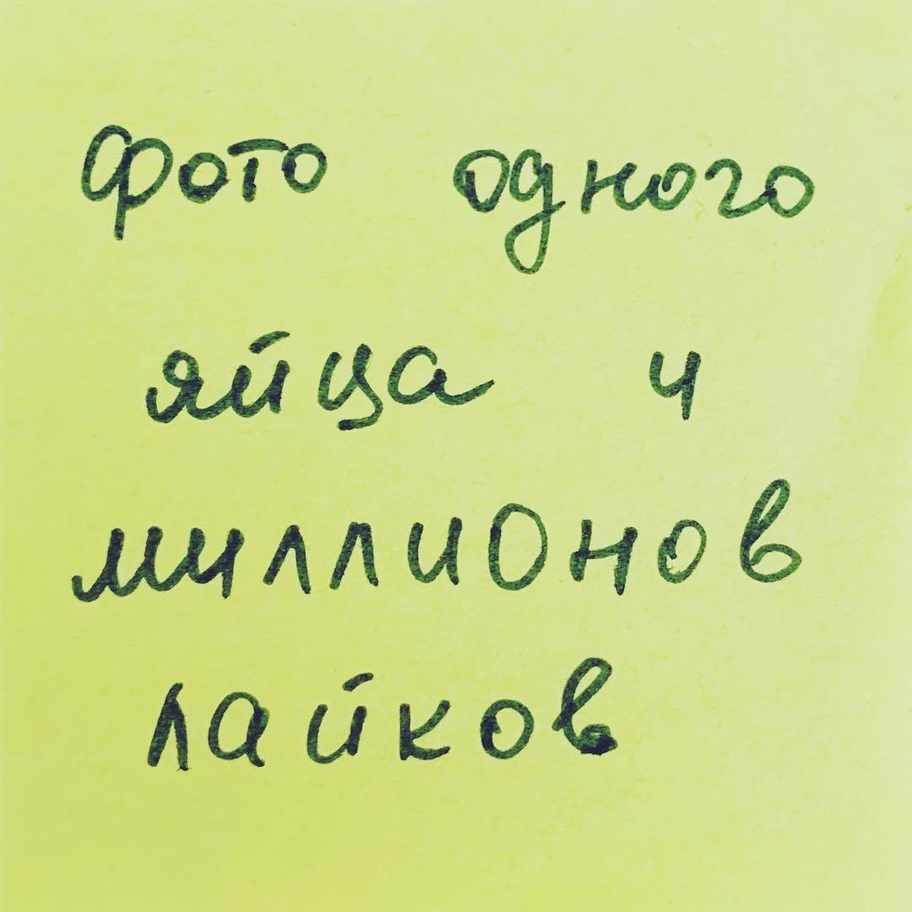 фото одного
яйца и
миллионов
лайков